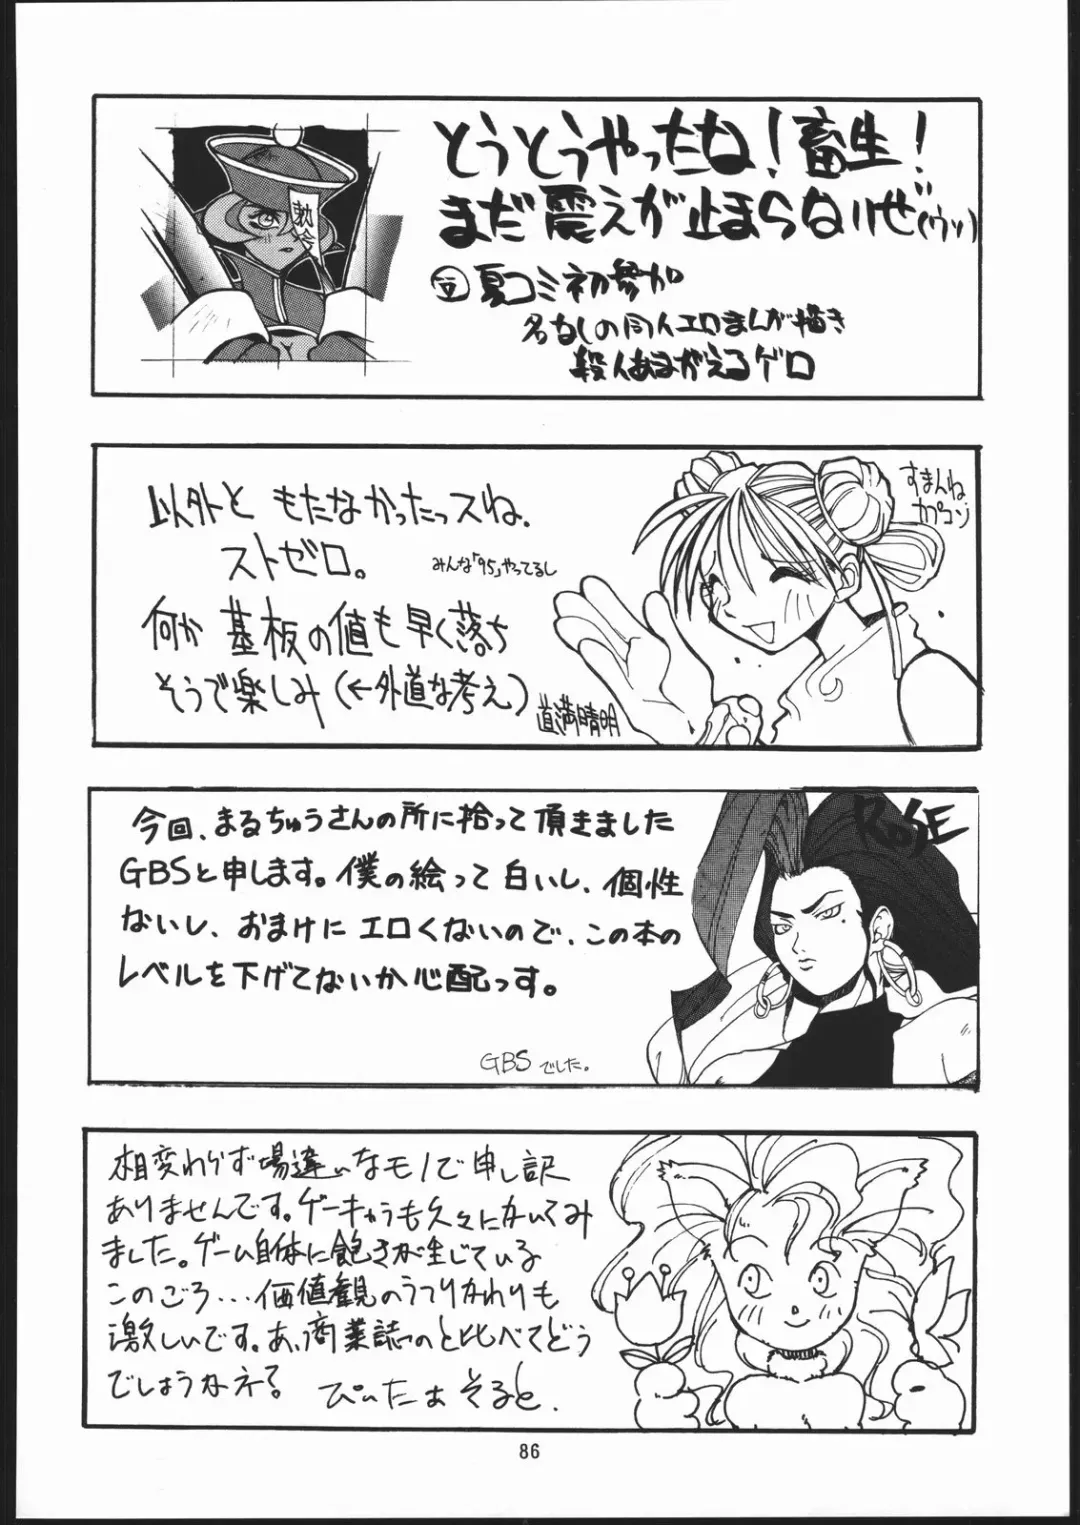 とうとうやったね！畜生！
まだ震えが止まらないぜ(ウッ)
夏コミ初参加
名なしの同人エロまんが描き
殺人あまがえるゲロ
勅令
以外と もたなかったっスね.
ストゼロ。
みんな｢95｣やってるし
何か 基板の値も早く落ち
そうで楽しみ(←外道な考え)
道満晴明
すまんね
カプコン
今回、まるちゅうさんの所に拾って頂きました
GBSと申します。僕の絵って白いし、個性
ないし、おまけにエロくないので、この本の
レベルを下げてないか心配っす。
GBS でした.
ROSE
相変わらず場違いなモノで申し訳
ありませんです。ゲーキャラも久々にかいてみ
ました。ゲーム自体に飽きが生じている
このごろ...価値観のうつりかわりも
激しいです。あ、商業誌のと比べてどう
でしょうかネ?
ぴいたぁ そると.
86